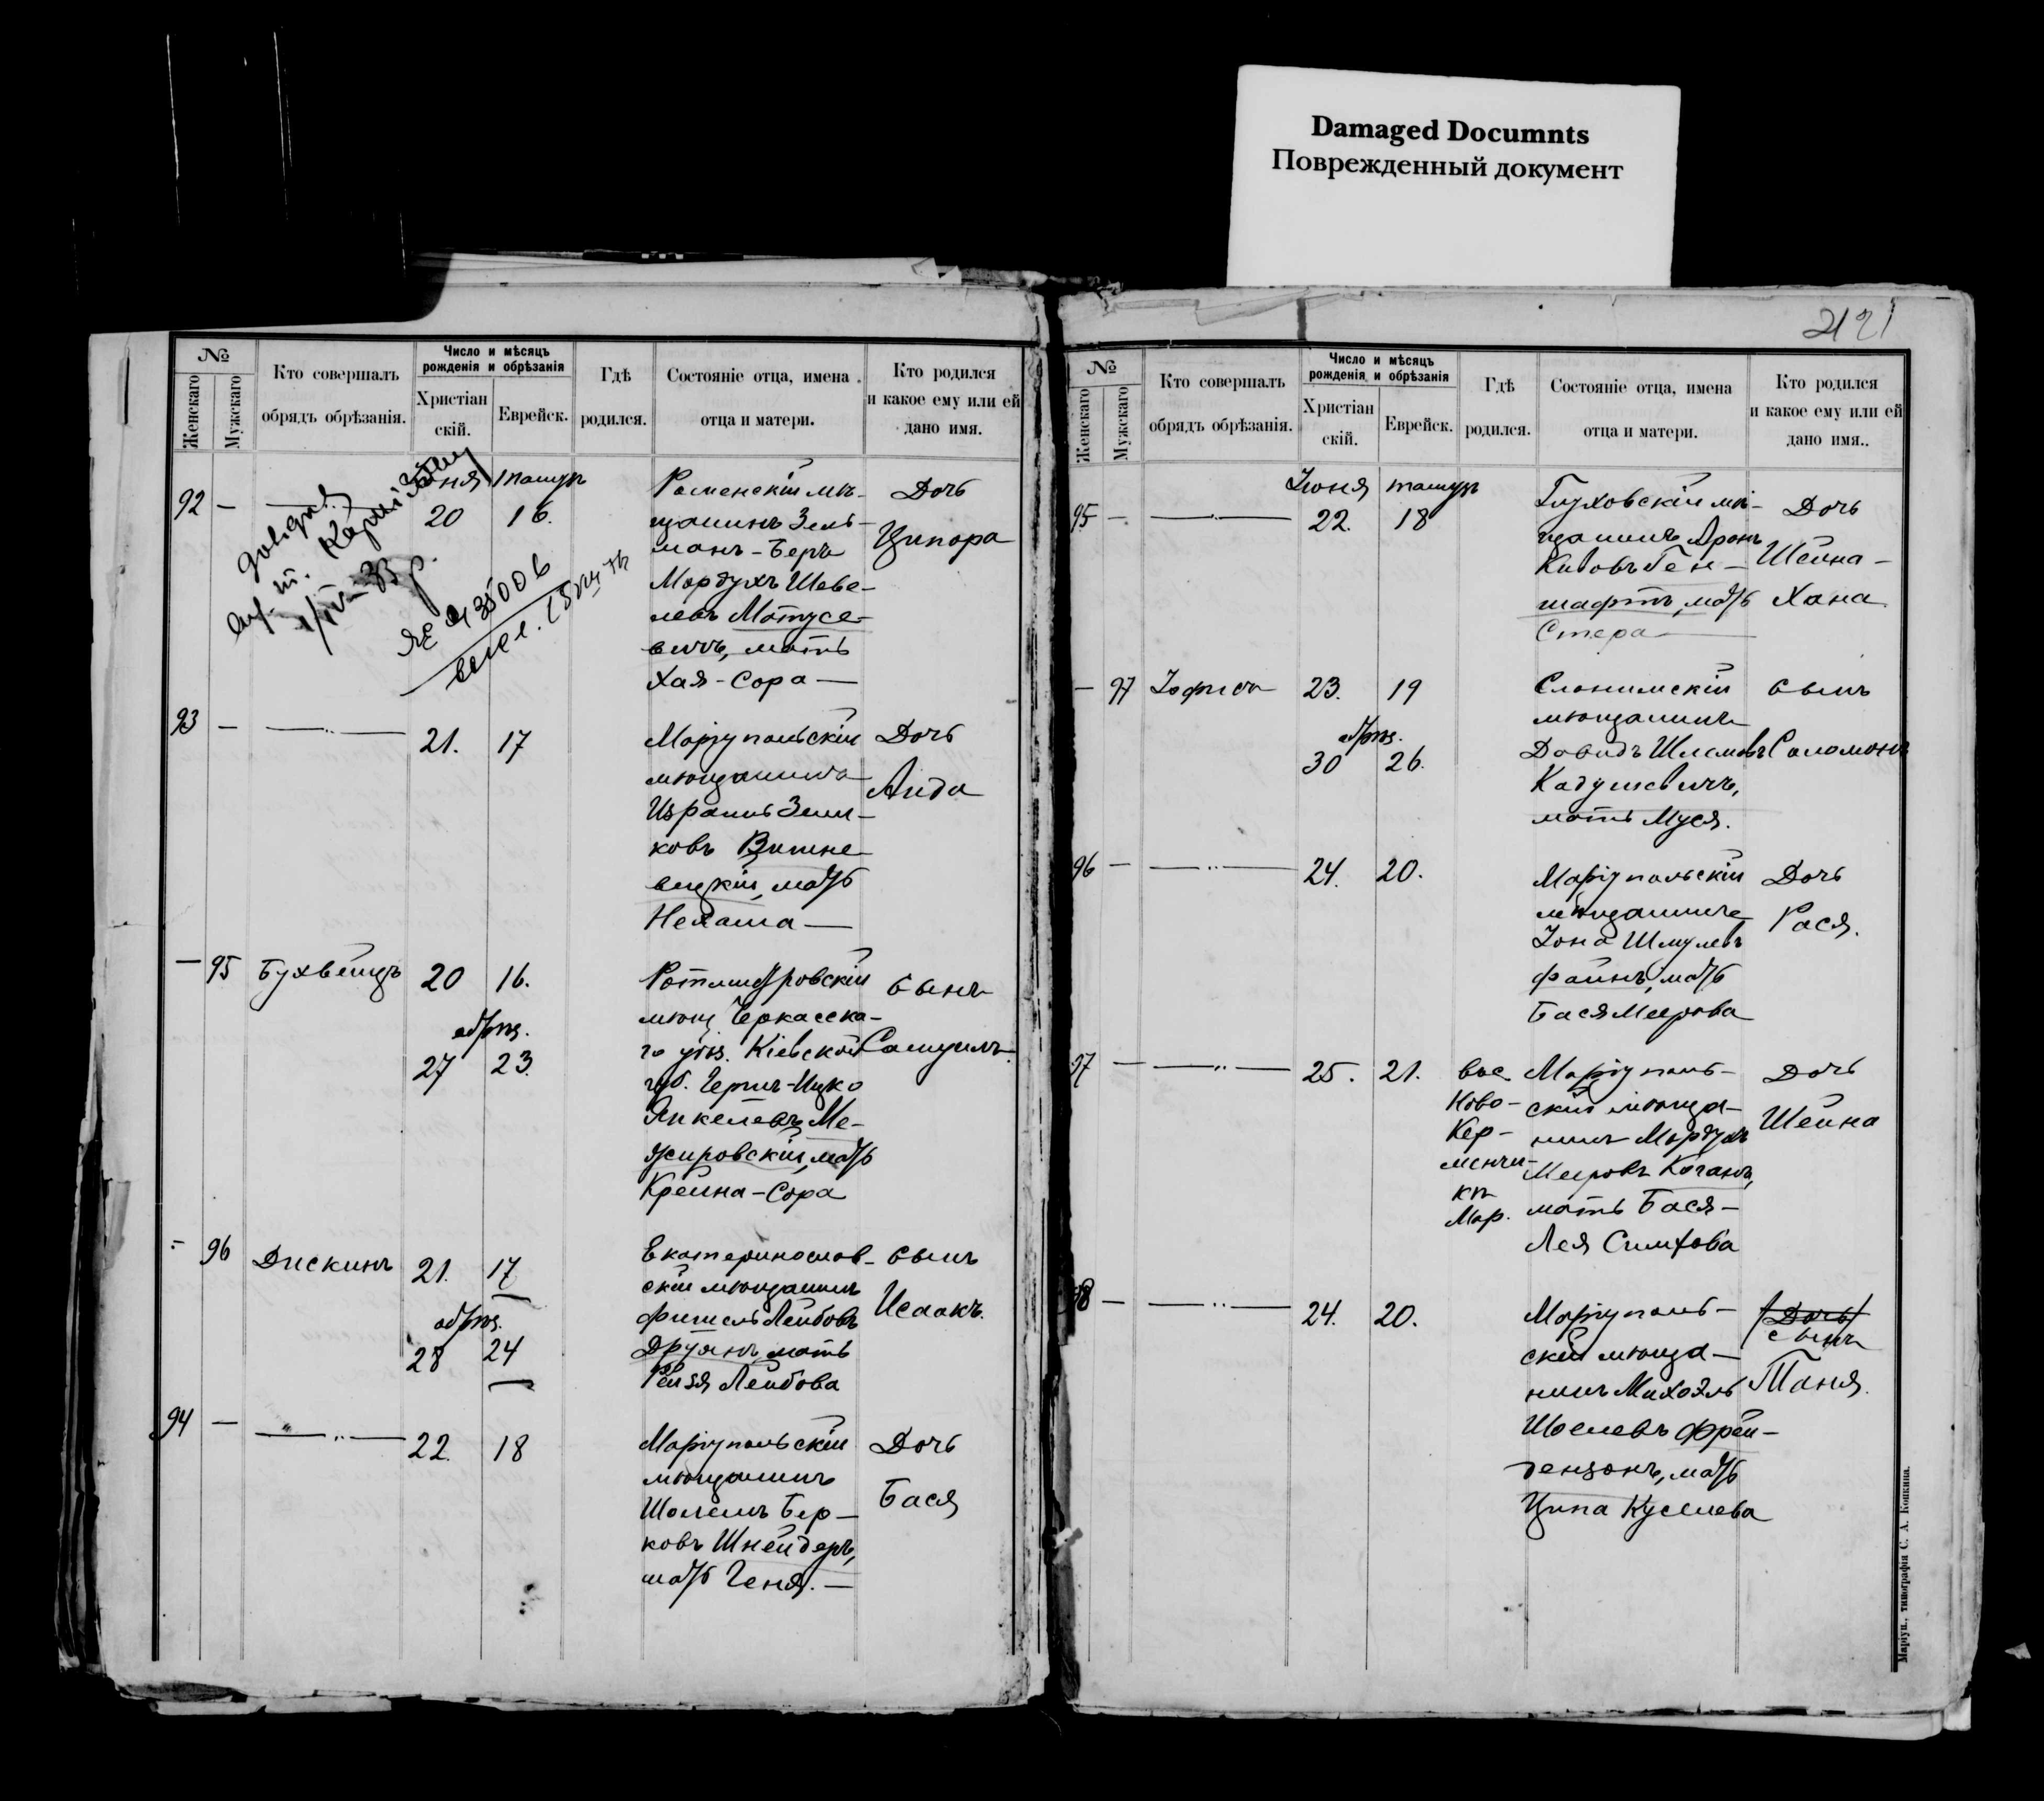 Damaged Documnts
Поврежденный документ
№
Женскаго
Мужскаго
Кто совершалъ
обрядъ обрѣзанія.
Число и мѣсяцъ
рожденія и обрѣзанія
Христіан
скій.
Еврейск.
Гдѣ
родился.
Состояніе отца, имена
отца и матери.
Кто родился
и какое ему или ей
дано имя.
92 —
20 16.
Роменскій мѣ-
щанинъ Зель-
манъ-Беръ
Мордухъ Шеве-
левъ Матусе-
вичъ, мать
Хая-Сора —
Дочь
Ципора
93 —
21. 17
Маріупольскій
мѣщанинъ
Израиль Зелик-
ковъ Вишне
вецкій, мать
Нехама —
Дочь
Аида
— 95 Бухвейцъ
20 16.
обрѣз.
27 23.
мѣщ. Черкасска-
го уѣз. Кіевской
губ. Герцъ-Ицко
Янкелевъ Ме-
жировскій, мать
Крейна-Сора
Сынъ
Самуилъ.
96 Дискинъ
21. 17
обрѣз.
28 24
Екатеринослав-
скій мѣщанинъ
Фишель Лейбовъ
Друянъ, мать
Рейзя Лейбова
Сынъ
Исаакъ.
94 —
22. 18
Маріупольскій
мѣщанинъ
Шолемъ Бер-
ковъ Шнейдеръ,
мать Геня. —
Дочь
Бася
2121
№
Женскаго
Мужскаго
Кто совершалъ
обрядъ обрѣзанія.
Число и мѣсяцъ
рожденія и обрѣзанія
Христіан
скій.
Еврейск.
Гдѣ
родился.
Состояніе отца, имена
отца и матери.
Кто родился
и какое ему или ей
дано имя..
Іюня тамуз
95 —
22. 18
Глуховскій мѣ-
щанинъ Аронъ
Кивовъ Ген-
шафтъ, мать
Стера
Дочь
Шейна-
Хана
— 97
23. 19
обрѣз.
30 26.
Слонимскій
мѣщанинъ
Давидъ Шлемовъ
Кадушевичъ,
мать Муся.
Сынъ
Соломонъ
96 —
24. 20.
Маріупольскій
мѣщанинъ
Іона Шмулевъ
Файнъ, мать
Бася Меерова
Дочь
Рася.
97 —
25. 21.
Ново-
Кер-
менчи-
кѣ
Мар.
Маріуполь-
скій мѣща-
нинъ Мордухъ
Мееровъ Коганъ,
мать Бася-
Лея Симхова
Дочь
Шейна
98 —
24. 20.
Маріуполь-
скій мѣща-
нинъ Михаэль
Шоелевъ Фрей-
дензонъ, мать
Ципа Куселева
Дочь
сынъ
Таня.
Маріуп., типографія С. А. Копкина.